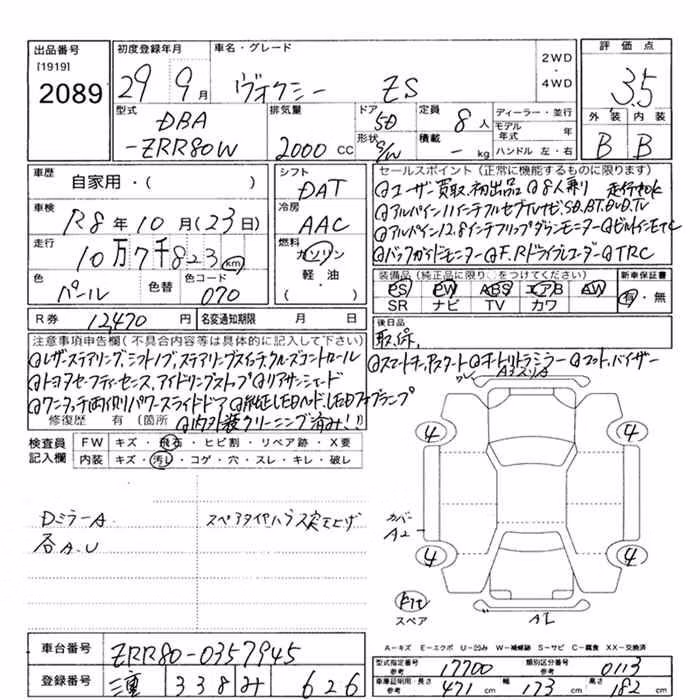 出品番号 [1919] 2089
初度登録年月 29 9月
車名・グレード ヴォクシー ZS
2WD ・ 4WD
評価点 3.5
外装 内装
B B
型式 DBA -ZRR80W
排気量 2000 CC
ドア 5D
形状 S/W
定員 8人
積載 - kg
ディーラー・並行
モデル年式 年
ハンドル 左・右
車歴 自家用・( )
車検 R8年10月(23日)
走行 10万7千823 km
色 パール 色替 色コード 070
シフト DAT
冷房 AAC
燃料 ガソリン 軽・油 ・( )
セールスポイント(正常に機能するものに限ります)
◎ユーザー買取、初出品 ◎8人乗り 走行10K
◎アルパイン11インチフルセグTVナビ、SD、BT、DVD、TV
◎アルパイン12.8インチフリップダウンモニター ◎ビルトインETC
◎バックガイドモニター ◎F、Rドライブレコーダー ◎TRC
装備品(純正品に限り○をつけてください) 新車保証書
PS PW ABS エアB AW 有・無
SR ナビ TV カワ
R券 12,470 円 名変通知期限 月 日
後日品 取、保、
注意事項申告欄(不具合内容等は具体的に記入して下さい)
◎レザーステアリング、シフトノブ、ステアリングスイッチ、クルーズコントロール
◎スマートキー、Pスタート ◎オートリトラミラー ◎フロアマット、バイザー
◎トヨタセーフティーセンス、アイドリングストップ ◎リアサンシェード
◎ワンタッチ両側パワースライドドア ◎純正LEDヘッド、LEDフォグランプ
修復歴 有 (箇所 ◎内外装クリーニング済み!!)
検査員記入欄
FW キズ・飛石・ヒビ割・リペア跡・X要
内装 キズ・汚れ・コゲ・穴・スレ・キレ・破レ
DミラーA
各A.U
スペアタイヤハウス突き上げ
4 4
カバー A2
4 4
スペア
A1
A-キズ E-エクボ U-凹み W-補修跡 S-サビ C-腐食 XX-交換済
車台番号 ZRR80-0357945
登録番号 三重 338 み 626
型式指定番号 参考 17700 類別区分番号 参考 0113
車庫証明用・長さ 参考 471 cm 幅 173 cm 高さ 182 cm